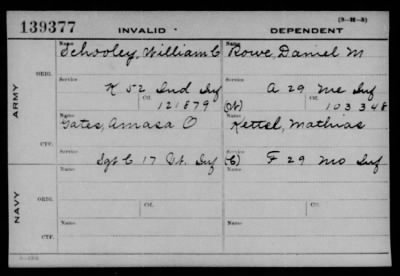 (3-H-3)
139377 INVALID DEPENDENT
Name Name
Schooley, William C Rowe, Daniel M
ARMY
ORIG.
Service Service
K 52 Ind Inf A 29 Me Inf
Ctf. Ctf.
121879 (W) 103348
Name Name
Gates, Amasa O Kettel, Mathias
CTF.
Service Service
Sgt C 17 Vt. Inf (C) F 29 Mo Inf
NAVY
ORIG.
Name Ctf. Name Ctf.
CTF.
Name Name